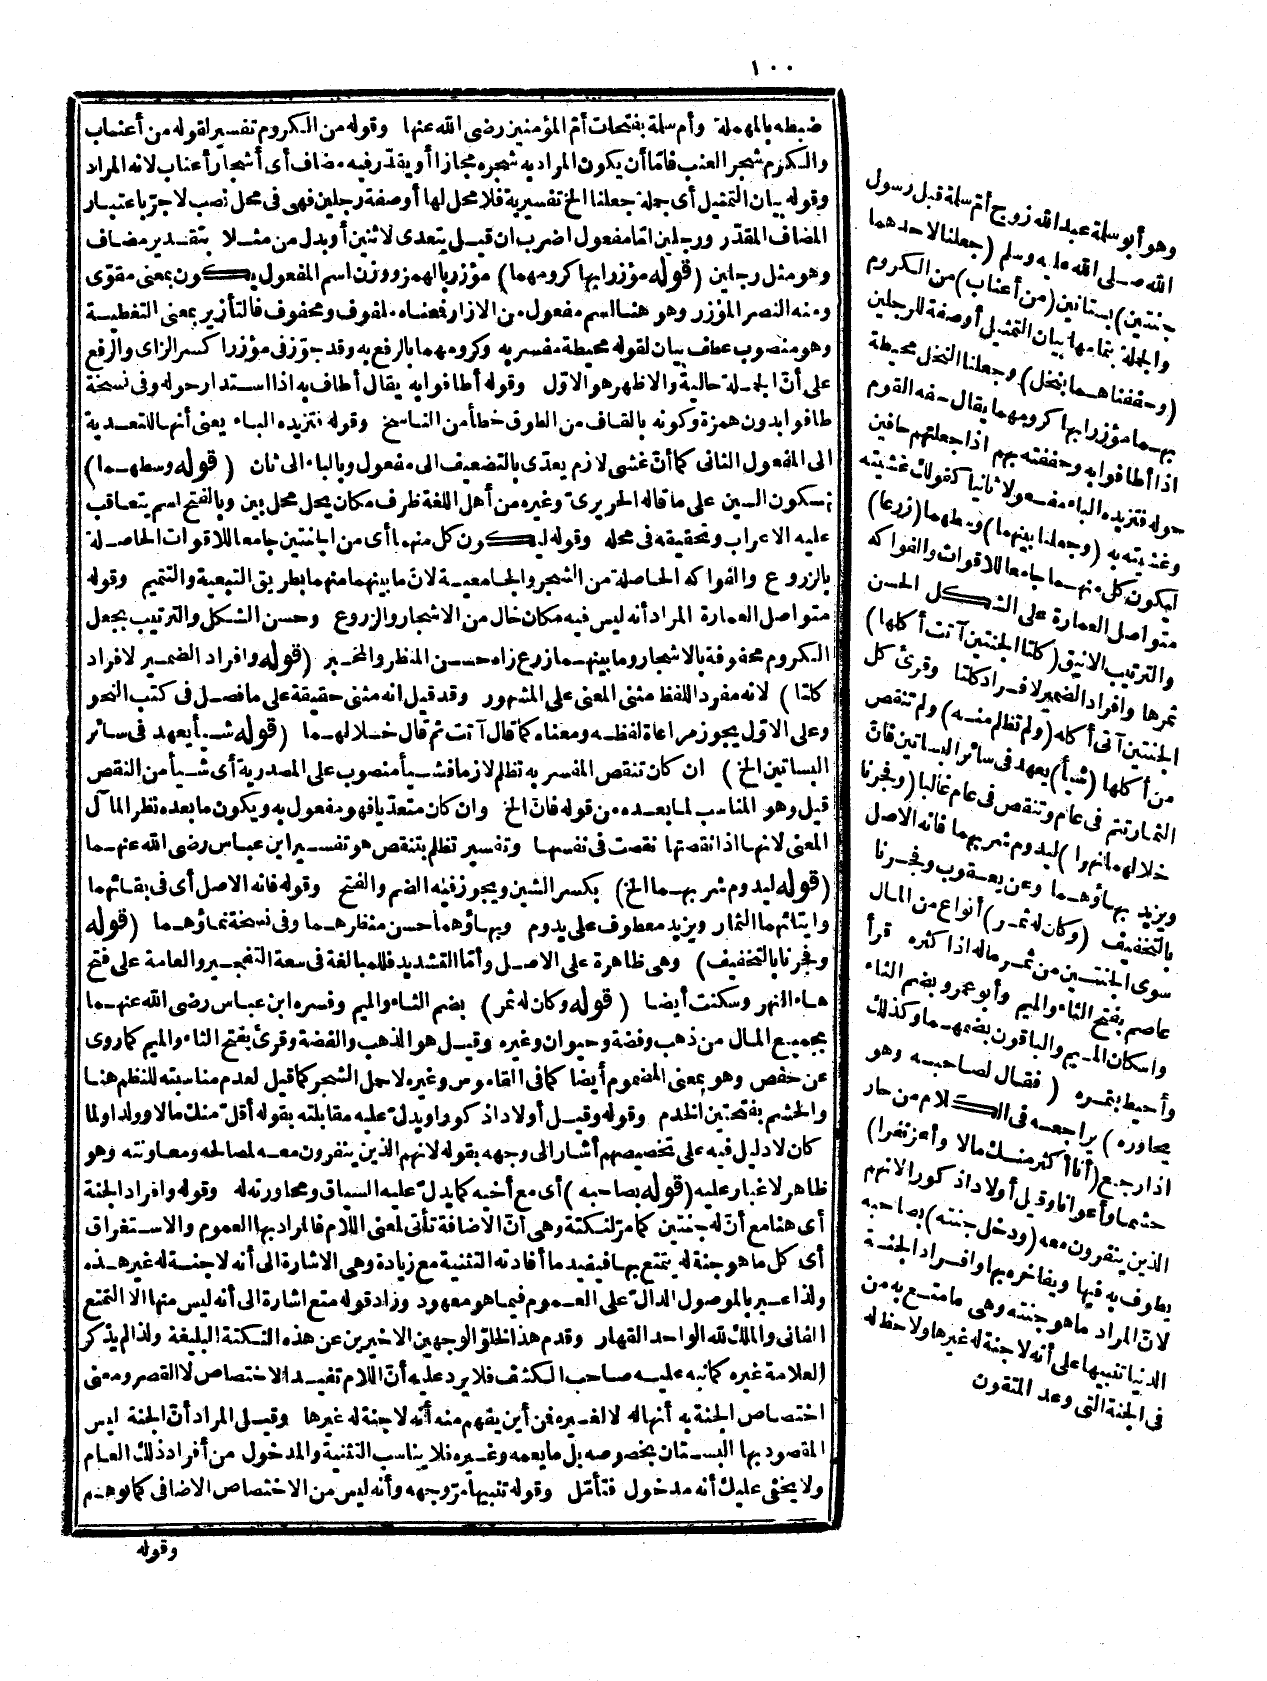 ١٠٠
ضبطه بالمهملة وأم سلة بفتحات أمّ المؤمنين رضى الله عنها وقوله من الكروم تفسير لقوله من أعناب
والكرم شجر العنب فامّا أن يكون المراد به شجره مجازا أو يقدّر فيه مضاف أى أشجار أعناب لانه المراد
وقوله بيان التمثيل أى جملة جعلنا الخ تفسيرية فلا محل لها أو صفة رجلين فهى فى محل نصب لا جرّ باعتبار
المضاف المقدّر ورجلين امّا مفعول اضرب ان قيل يتعدى لاثنين أو بدل من مثلا بتقدير مضاف
وهو مثل رجلين (قوله مؤزرا بها كرومهما) مؤزر بالهمز ووزن اسم المفعول يكون بمعنى مقوّى
ومنه النصر المؤزر وهو هنا اسم مفعول من الازار فمعناه ملفوف ومحفوف فالتأزير بمعنى التغطية
وهو منصوب عطف بيان لقوله محيطة مفسر به وكرومهما بالرفع به وقد جوّز فى مؤزرا كسر الزاى والرفع
على أنّ الجملة حالية والاظهر هو الاوّل وقوله أطافوا به يقال أطاف به اذا استدار حوله وفى نسخة
طافوا بدون همزة وكونه بالقاف من الطوق خطأ من الناسخ وقوله فتزيده الباء يعنى أنها للتعدية
الى المفعول الثانى كما أنّ غشى لازم يعدّى بالتضعيف الى مفعول وبالباء الى ثان (قوله وسطهما)
بسكون السين على ما قاله الحريرىّ وغيره من أهل اللغة ظرف مكان يحل محل بين وبالفتح اسم يتعاقب
عليه الاعراب وتحقيقه فى محله وقوله ليكون كل منهما أى من الجنتين جامعا للاقوات الحاصلة
بالزروع والفواكه الحاصلة من الشجر والجامعية لانّ ما بينهما منهما بطريق التبعية والتتميم وقوله
متواصل العمارة المراد أنه ليس فيه مكان خال من الاشجار والزروع وحسن الشكل والترتيب بجعل
الكروم محفوفة بالاشجار وما بينهما زرع زاه حسن المنظر والمخبر (قوله وافراد الضمير لافراد
كلتا) لانه مفرد اللفظ مثنى المعنى على المشهور وقد قيل انه مثنى حقيقة على ما فصل فى كتب النحو
وعلى الاوّل يجوز مراعاة لفظه ومعناه كما قال آتت ثم قال خلالهما (قوله شيأ يعهد فى سائر
البساتين الخ) ان كان تنقص المفسر به تظلم لازما فشيأ منصوب على المصدرية أى شيأ من النقص
قيل وهو المناسب لما بعده من قوله فانّ الخ وان كان متعدّيا فهو مفعول به ويكون ما بعده نظر المآل
المعنى لانها اذا نقصتها نقصت فى نفسها وتفسير تظلم بتنقص هو تفسير ابن عباس رضى الله عنهما
(قوله ليدوم شربهما الخ) بكسر الشين ويجوز فيه الضم والفتح وقوله فانه الاصل أى فى بقائهما
وايتائهما الثمار ويزيد معطوف على يدوم وبهاؤهما حسن منظرهما وفى نسخة نماؤهما (قوله
وفجرنا بالتخفيف) وهى ظاهرة على الاصل وأمّا التشديد فللمبالغة فى سعة التفجير والعامة على فتح
هاء النهر وسكنت أيضا (قوله وكان له ثمر) بضم الثاء والميم وفسره ابن عباس رضى الله عنهما
بجميع المال من ذهب وفضة وحيوان وغيره وقيل هو الذهب والفضة وقرئ بفتح الثاء والميم كما روى
عن حفص وهو بمعنى المضموم أيضا كما فى القاموس وغيره لا حمل الشجر كما قيل لعدم مناسبته للنظم هنا
والحشم بفتحتين الخدم وقوله وقيل أولادا ذكورا ويدلّ عليه مقابلته بقوله أقلّ منك مالا وولدا ولما
كان لا دليل فيه على تخصيصهم أشار الى وجهه بقوله لانهم الذين ينفرون معه لمصالحه ومعاونته وهو
ظاهر لا غبار عليه (قوله بصاحبه) أى مع أخيه كما يدلّ عليه السياق ومحاورته له وقوله وافراد الجنة
أى هنا مع أنّ له جنتين كما مرّ لنكتة وهى أنّ الاضافة تأتى لمعنى اللام فالمراد بها العموم والاستغراق
أى كل ما هو جنة له يتمتع بها فيفيد ما أفادته التثنية مع زيادة وهى الاشارة الى أنه لا جنة له غير هذه
ولذا عبر بالموصول الدالّ على العموم فيما هو معهود وزاد قوله متع اشارة الى أنه ليس منها الا التمتع
الفانى والملك لله الواحد القهار وقدم هذا لخلوّ الوجهين الاخيرين عن هذه النكتة البليغة ولذا لم يذكر
العلامة غيره كما نبه عليه صاحب الكشف فلا يرد عليه أنّ اللام تفيد الاختصاص لا القصر ومعنى
اختصاص الجنة به أنها له لا لغيره فمن أين يفهم منه أنه لا جنة له غيرها وقيل المراد أنّ الجنة ليس
المقصود بها البستان بخصوصه بل ما يعمه وغيره فلا يناسب التثنية والمدخول من أفراد ذلك العام
ولا يخفى عليك أنه مدخول فتأمّل وقوله تنبيها مرّ وجهه وأنه ليس من الاختصاص الاضافى كما توهم
وقوله
وهو أبو سلة عبد الله زوج أمّ سلة قبل رسول
الله صلى الله عليه وسلم (جعلنا لاحدهما
جنتين) بستانين (من أعناب) من الكروم
والجملة بتمامها بيان التمثيل أو صفة للرجلين
(وحففناهما بنخل) وجعلنا النخل محيطة
بهما مؤزرا بها كرومهما يقال حفه القوم
اذا أطافوا به وحففته بهم اذا جعلتهم حافين
حوله فتزيده الباء مفعولا ثانيا كقولك غشيته
وغشيته به (وجعلنا بينهما) وسطهما (زرعا)
ليكون كل منهما جامعا للاقوات والفواكه
متواصل العمارة على الشكل الحسن
والترتيب الانيق (كلتا الجنتين آتت أكلها)
ثمرها وافراد الضمير لافراد كلتا وقرئ كل
الجنتين آتى أكله (ولم تظلم منه) ولم تنقص
من أكلها (شيأ) يعهد فى سائر البساتين فانّ
الثمار تتم فى عام وتنقص فى عام غالبا (وفجرنا
خلالهما نهرا) ليدوم شربهما فانه الاصل
ويزيد بهاؤهما وعن يعقوب وفجرنا
بالتخفيف (وكان له ثمر) أنواع من المال
سوى الجنتين من ثمر ماله اذا كثره قرأ
عاصم بفتح الثاء والميم وأبو عمرو بضم الثاء
واسكان الميم والباقون بضمهما وكذلك
وأحيط بثمره (فقال لصاحبه وهو
يحاوره) يراجعه فى الكلام من حار
اذا رجع (أنا أكثر منك مالا وأعز نفرا)
حشما وأعوانا وقيل أولادا ذكورا لانهم
الذين ينفرون معه (ودخل جنته) بصاحبه
يطوف به فيها ويفاخره بها وافراد الجنة
لانّ المراد ما هو جنته وهى ما متع به من
الدنيا تنبيها على أنه لا جنة له غيرها ولا حظ له
فى الجنة التى وعد المتقون